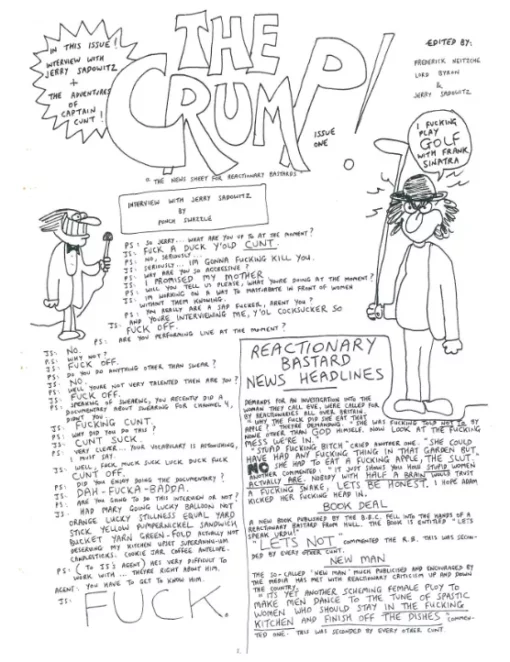 IN THIS ISSUE!
INTERVIEW WITH
JERRY SADOWITZ
+
THE ADVENTURES
OF
CAPTAIN
CUNT!
THE
CRUMP!
ISSUE
ONE
THE NEWS SHEET FOR REACTIONARY BASTARDS
EDITED BY:
FREDERICK NEITZCHE
LORD BYRON
&
JERRY SADOWITZ
I FUCKING
PLAY
GOLF
WITH FRANK
SINATRA
INTERVIEW WITH JERRY SADOWITZ
BY
PUNCH SWAZZLE
PS: SO JERRY... WHAT ARE YOU UP TO AT THE MOMENT?
JS: FUCK A DUCK Y'OLD CUNT.
PS: NO, SERIOUSLY...
JS: SERIOUSLY... IM GONNA FUCKING KILL YOU.
PS: WHY ARE YOU SO AGGRESSIVE?
JS: I PROMISED MY MOTHER
PS: WILL YOU TELL US PLEASE, WHAT YOU'RE DOING AT THE MOMENT?
JS: IM WORKING ON A WAY TO MASTURBATE IN FRONT OF WOMEN
WITHOUT THEM KNOWING.
PS: YOU REALLY ARE A SAD FUCKER, ARENT YOU?
JS: AND YOU'RE INTERVIEWING ME, Y'OL COCKSUCKER SO
FUCK OFF.
PS: ARE YOU PERFORMING LIVE AT THE MOMENT?
JS: NO.
PS: WHY NOT?
JS: FUCK OFF.
PS: DO YOU DO ANYTHING OTHER THAN SWEAR?
JS: NO.
PS: WELL YOU'RE NOT VERY TALENTED THEN ARE YOU?
JS: FUCK OFF.
PS: SPEAKING OF SWEARING, YOU RECENTLY DID A
DOCUMENTARY ABOUT SWEARING FOR CHANNEL 4,
DIDN'T YOU.
JS: FUCKING CUNT.
PS: WHY DID YOU DO THIS?
JS: CUNT SUCK.
PS: VERY CLEVER... YOUR VOCABULARY IS ASTONISHING,
I MUST SAY.
JS: WELL, FUCK MUCK SUCK LUCK DUCK FUCK
CUNT OFF.
PS: DID YOU ENJOY DOING THE DOCUMENTARY?
JS: DAH-FUCKA-BADPAD
PS: ARE YOU GOING TO DO THIS INTERVIEW OR NOT?
JS: HAD MARY GOING LUCKY BALLOON NOT
ORANGE LUCKY STILLNESS EQUAL YARD
STICK YELLOW PUMPERNICKEL SANDWICH
BUCKET YARN GREEN-FOLD ACTUALLY NOT
DESERVING MY KITCHEN UPSET SUPERANNU-UM
CANDLESTICKS. COOKIE JAR COFFEE ANTELIFE.
PS: (TO JS'S AGENT) HES VERY DIFFICULT TO
WORK WITH... THEYRE RIGHT ABOUT HIM.
AGENT: YOU HAVE TO GET TO KNOW HIM.
JS: FUCK.
REACTIONARY
BASTARD
NEWS HEADLINES
DEMANDS FOR AN INVESTIGATION INTO THE
WOMAN THEY CALL EVE, WERE CALLED FOR
BY REACTIONARIES ALL OVER BRITAIN.
"WHY THE FUCK DID SHE EAT THAT
APPLE?" THEY'RE DEMANDING. "SHE WAS FUCKING TOLD NOT TO BY
NONE OTHER THAN GOD HIMSELF. NOW LOOK AT THE FUCKING
MESS WE'RE IN."
"STUPID FUCKING BITCH" CRIED ANOTHER ONE. "SHE COULD
HAVE HAD ANY FUCKING THING IN THAT GARDEN BUT
NO SHE HAD TO EAT A FUCKING APPLE, THE SLUT."
ANOTHER COMMENTED: "IT JUST SHOWS YOU HOW STUPID WOMEN
ACTUALLY ARE. NOBODY WITH HALF A BRAIN WOULD TRUST
A FUCKING SNAKE, LETS BE HONEST. I HOPE ADAM
KICKED HER FUCKING HEAD IN.
BOOK DEAL
A NEW BOOK PUBLISHED BY THE B.B.C. FELL INTO THE HANDS OF A
REACTIONARY BASTARD FROM HULL. THE BOOK IS ENTITLED "LETS
SPEAK URDU"
"LETS NOT" COMMENTED THE R.B. THIS WAS SECON-
DED BY EVERY OTHER CUNT.
NEW MAN
THE SO-CALLED "NEW MAN" MUCH PUBLICISED AND ENCOURAGED BY
THE MEDIA HAS MET WITH REACTIONARY CRITICISM UP AND DOWN
THE COUNTRY.
"ITS YET ANOTHER SCHEMING FEMALE PLOY TO
MAKE MEN DANCE TO THE TUNE OF SPASTIC
WOMEN WHO SHOULD STAY IN THE FUCKING
KITCHEN AND FINISH OFF THE DISHES" COMMEN-
TED ONE. THIS WAS SECONDED BY EVERY OTHER CUNT.